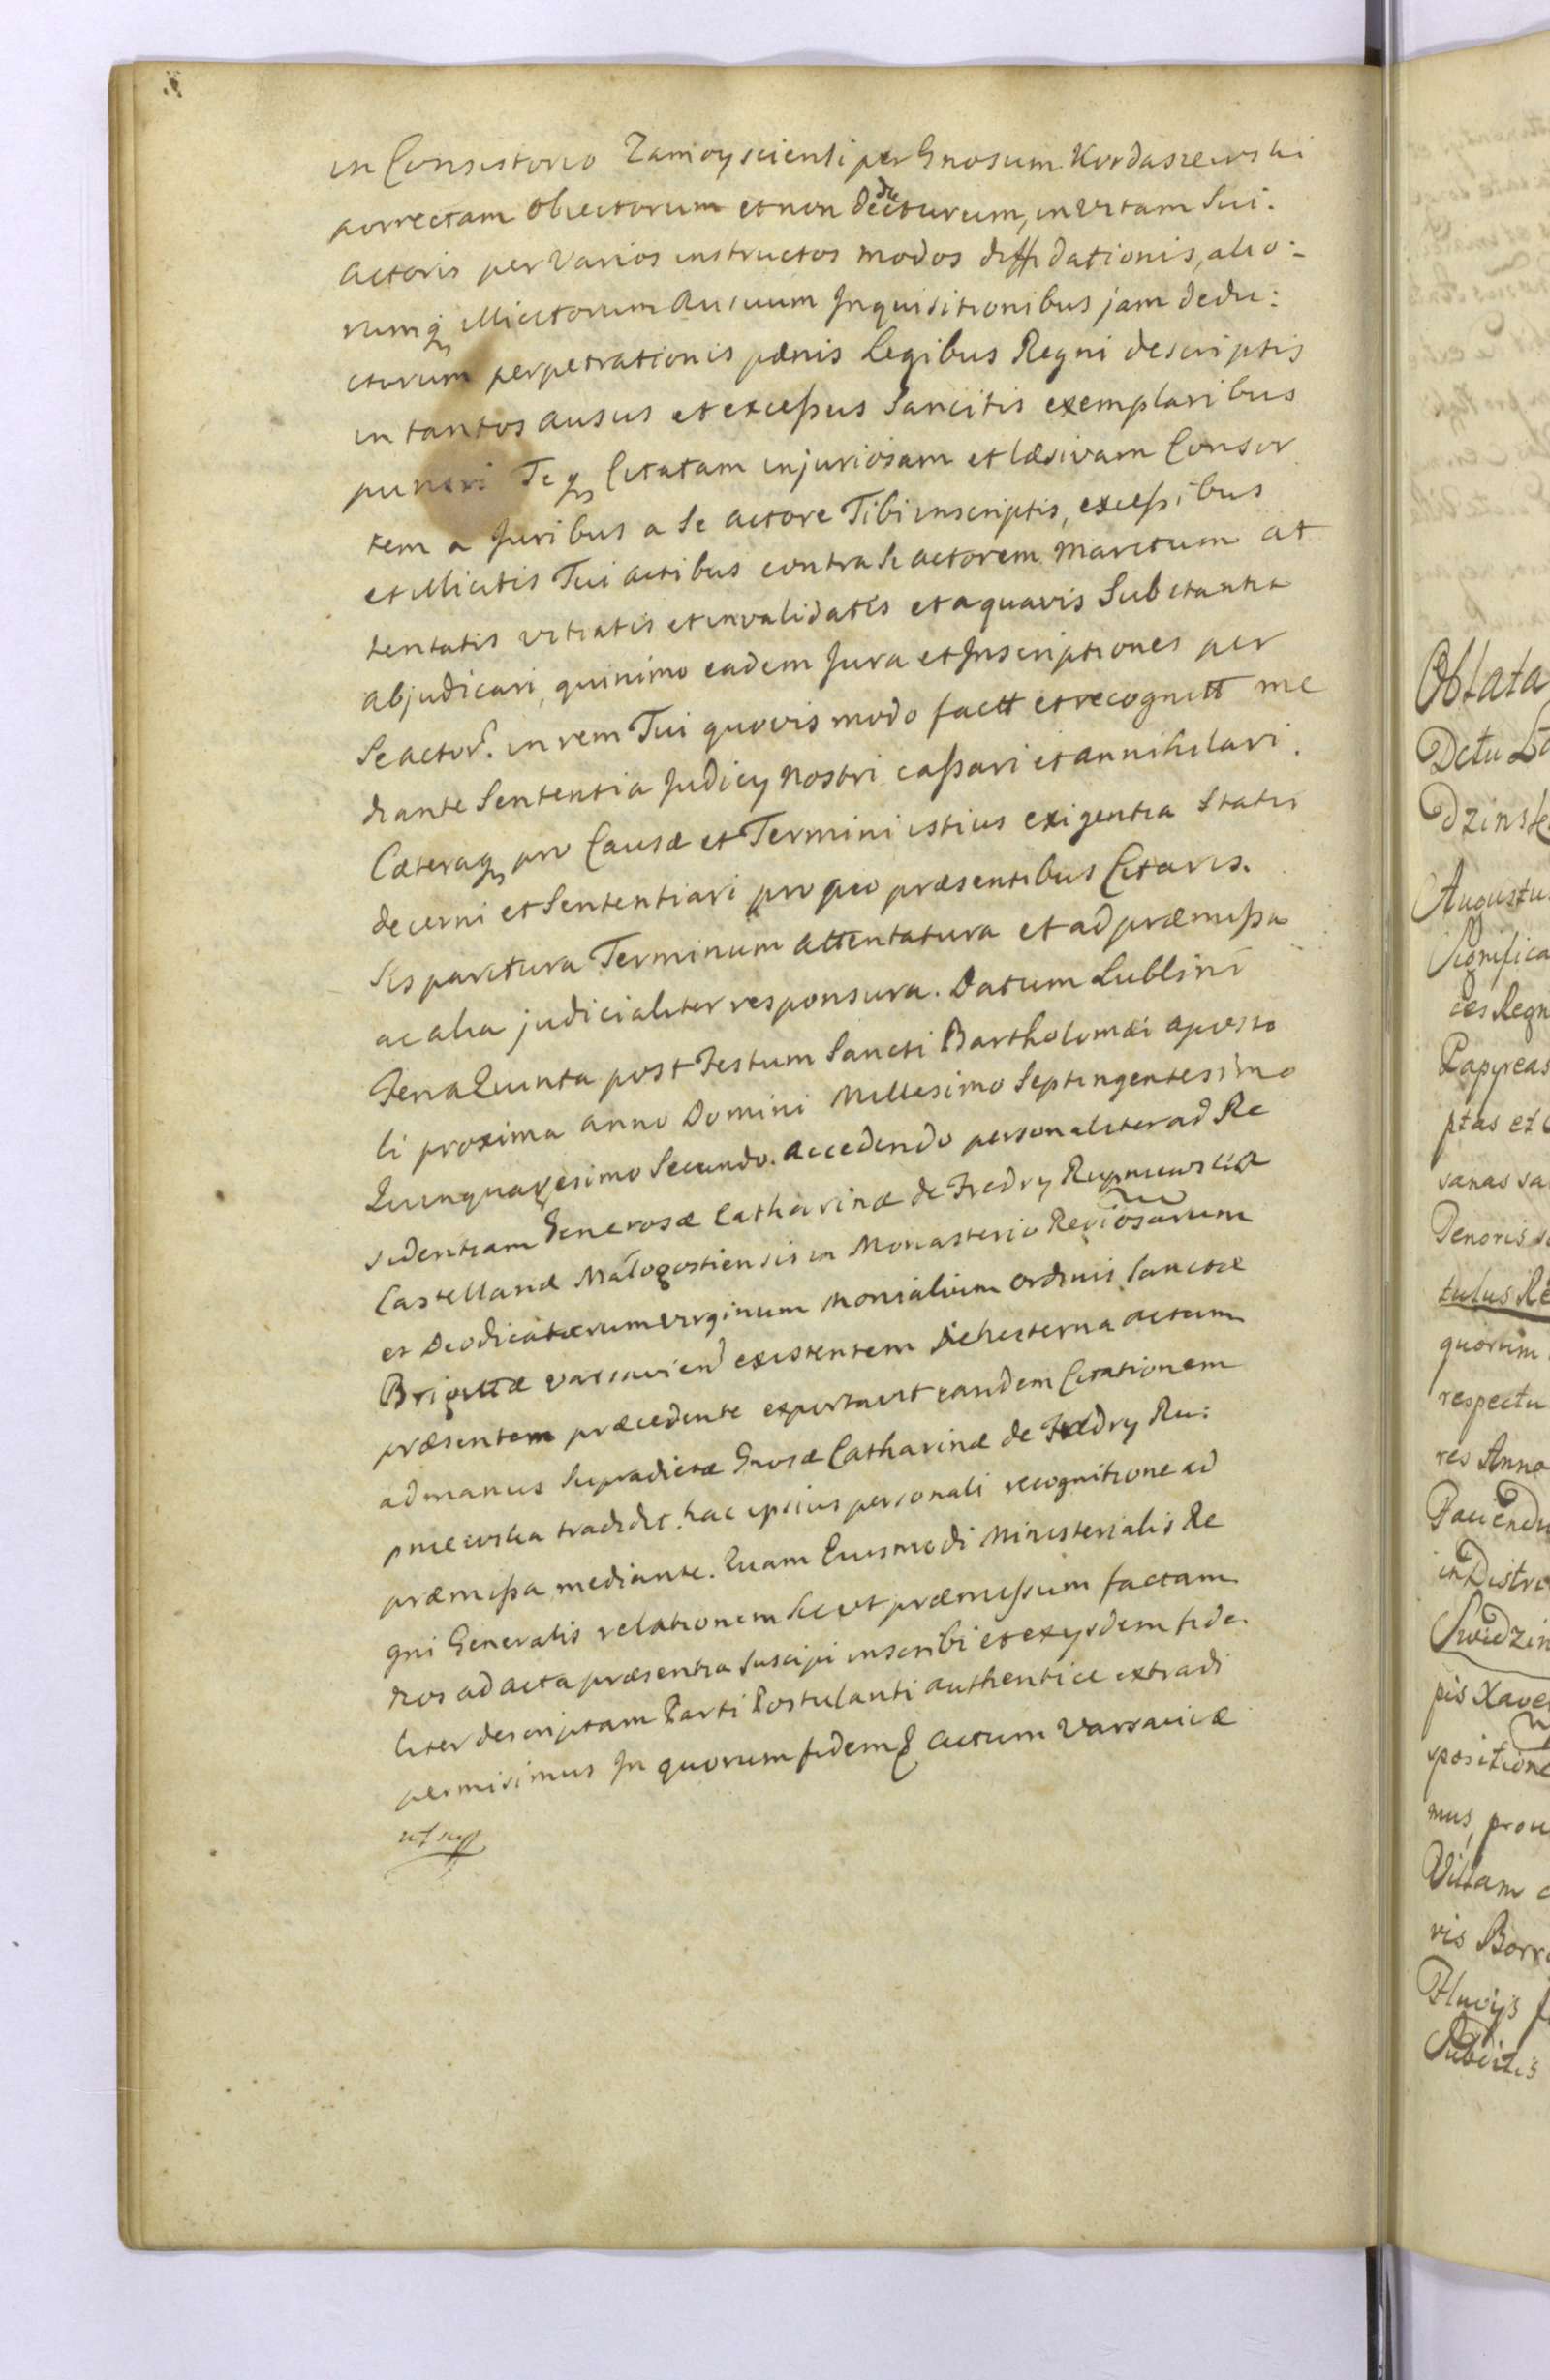 in Consistorio Zamoysciensi per Gnosum Kordaszewski
porrectam Obiectorum et non deducturum, in vitam Sui.
Actoris per Varios instructos modos diffidationis, alio:
rumq illicitorum Ausuum Inquisitionibus jam dedu:
ctorum perpetrationis pænis Legibus Regni descriptis
in tantos ausus et excessus Sancitis exemplaribus
puniri Teq Citatam injuriosam et læsivam Consor
tem a Juribus a Se actore Tibi inscriptis, excessibus
et illicitis Tui actibus contra Se actorem Maritum at
tentatis vitiatis et invalidatis et a quavis Substantia
abjudicari, quinimo eadem Jura et Inscriptiones per
Se actor. in rem Tui quovis modo factt et recognitt me
diante Sententia Judicy Nostri cassari et annihilari.
Cæteraq pro Causæ et Termini istius exigentia Statui
decerni et Sententiari pro quo præsentibus Citaris.
Sis paritura Terminum attentatura et ad præmissa
ac alia judicialiter responsura. Datum Lublini
Feria Quinta post Festum Sancti Bartholomæi Aposto
li proxima Anno Domini Millesimo Septingentesimo
Quinquagesimo Secundo. Accedendo personaliter ad Re
sidentiam Generosæ Catharinæ de Fredry Rupniewskia
Castellanæ Małogostiensis in Monasterio Reviosarum
et Deodicatarum Virginum Monialium Ordinis Sanctæ
Brigittæ Varsavien existentem Die hesterna actum
præsentem præcedente exportavit eandem Citationem
ad manus Supradictæ Gnosæ Catharinæ de Fredry Ru:
pniewska tradidit. hac ipsius personali recognitione ad
præmissa mediante. Quam Eiusmodi Ministerialis Re
gni Generalis relationem Sicut præmissum factam
Nos ad acta præsentia suscipi inscribi et ex ysdem fide.
liter descriptam Parti Postulanti authentice extradi
permisimus In quorum fidem Actum Varsaviæ
ut sup
Oblata
Dctu
dzinsk
Augustu
Significa
ces Regn
Papyreas
ptas et
sanas sa
Tenoris
tulus Re
quorum
respectu
res Anno
in Distri
Swidzin
pis Xave
spositione
mus, prou
Villam
vis Borr
Fluvijs
Subditis